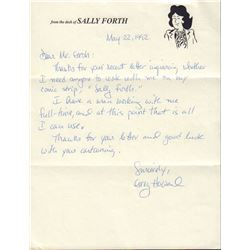 from the desk of SALLY FORTH
May 22, 1982
Dear Mr.
Thanks for your recent letter inquiring whether
I need anyone to work with me on my
comic strip, "Sally Forth."
I have a man working with me
full-time, and at this point that is all
I can use.
Thanks for your letter and good luck
with your cartooning.
Sincerely,
Greg Howard